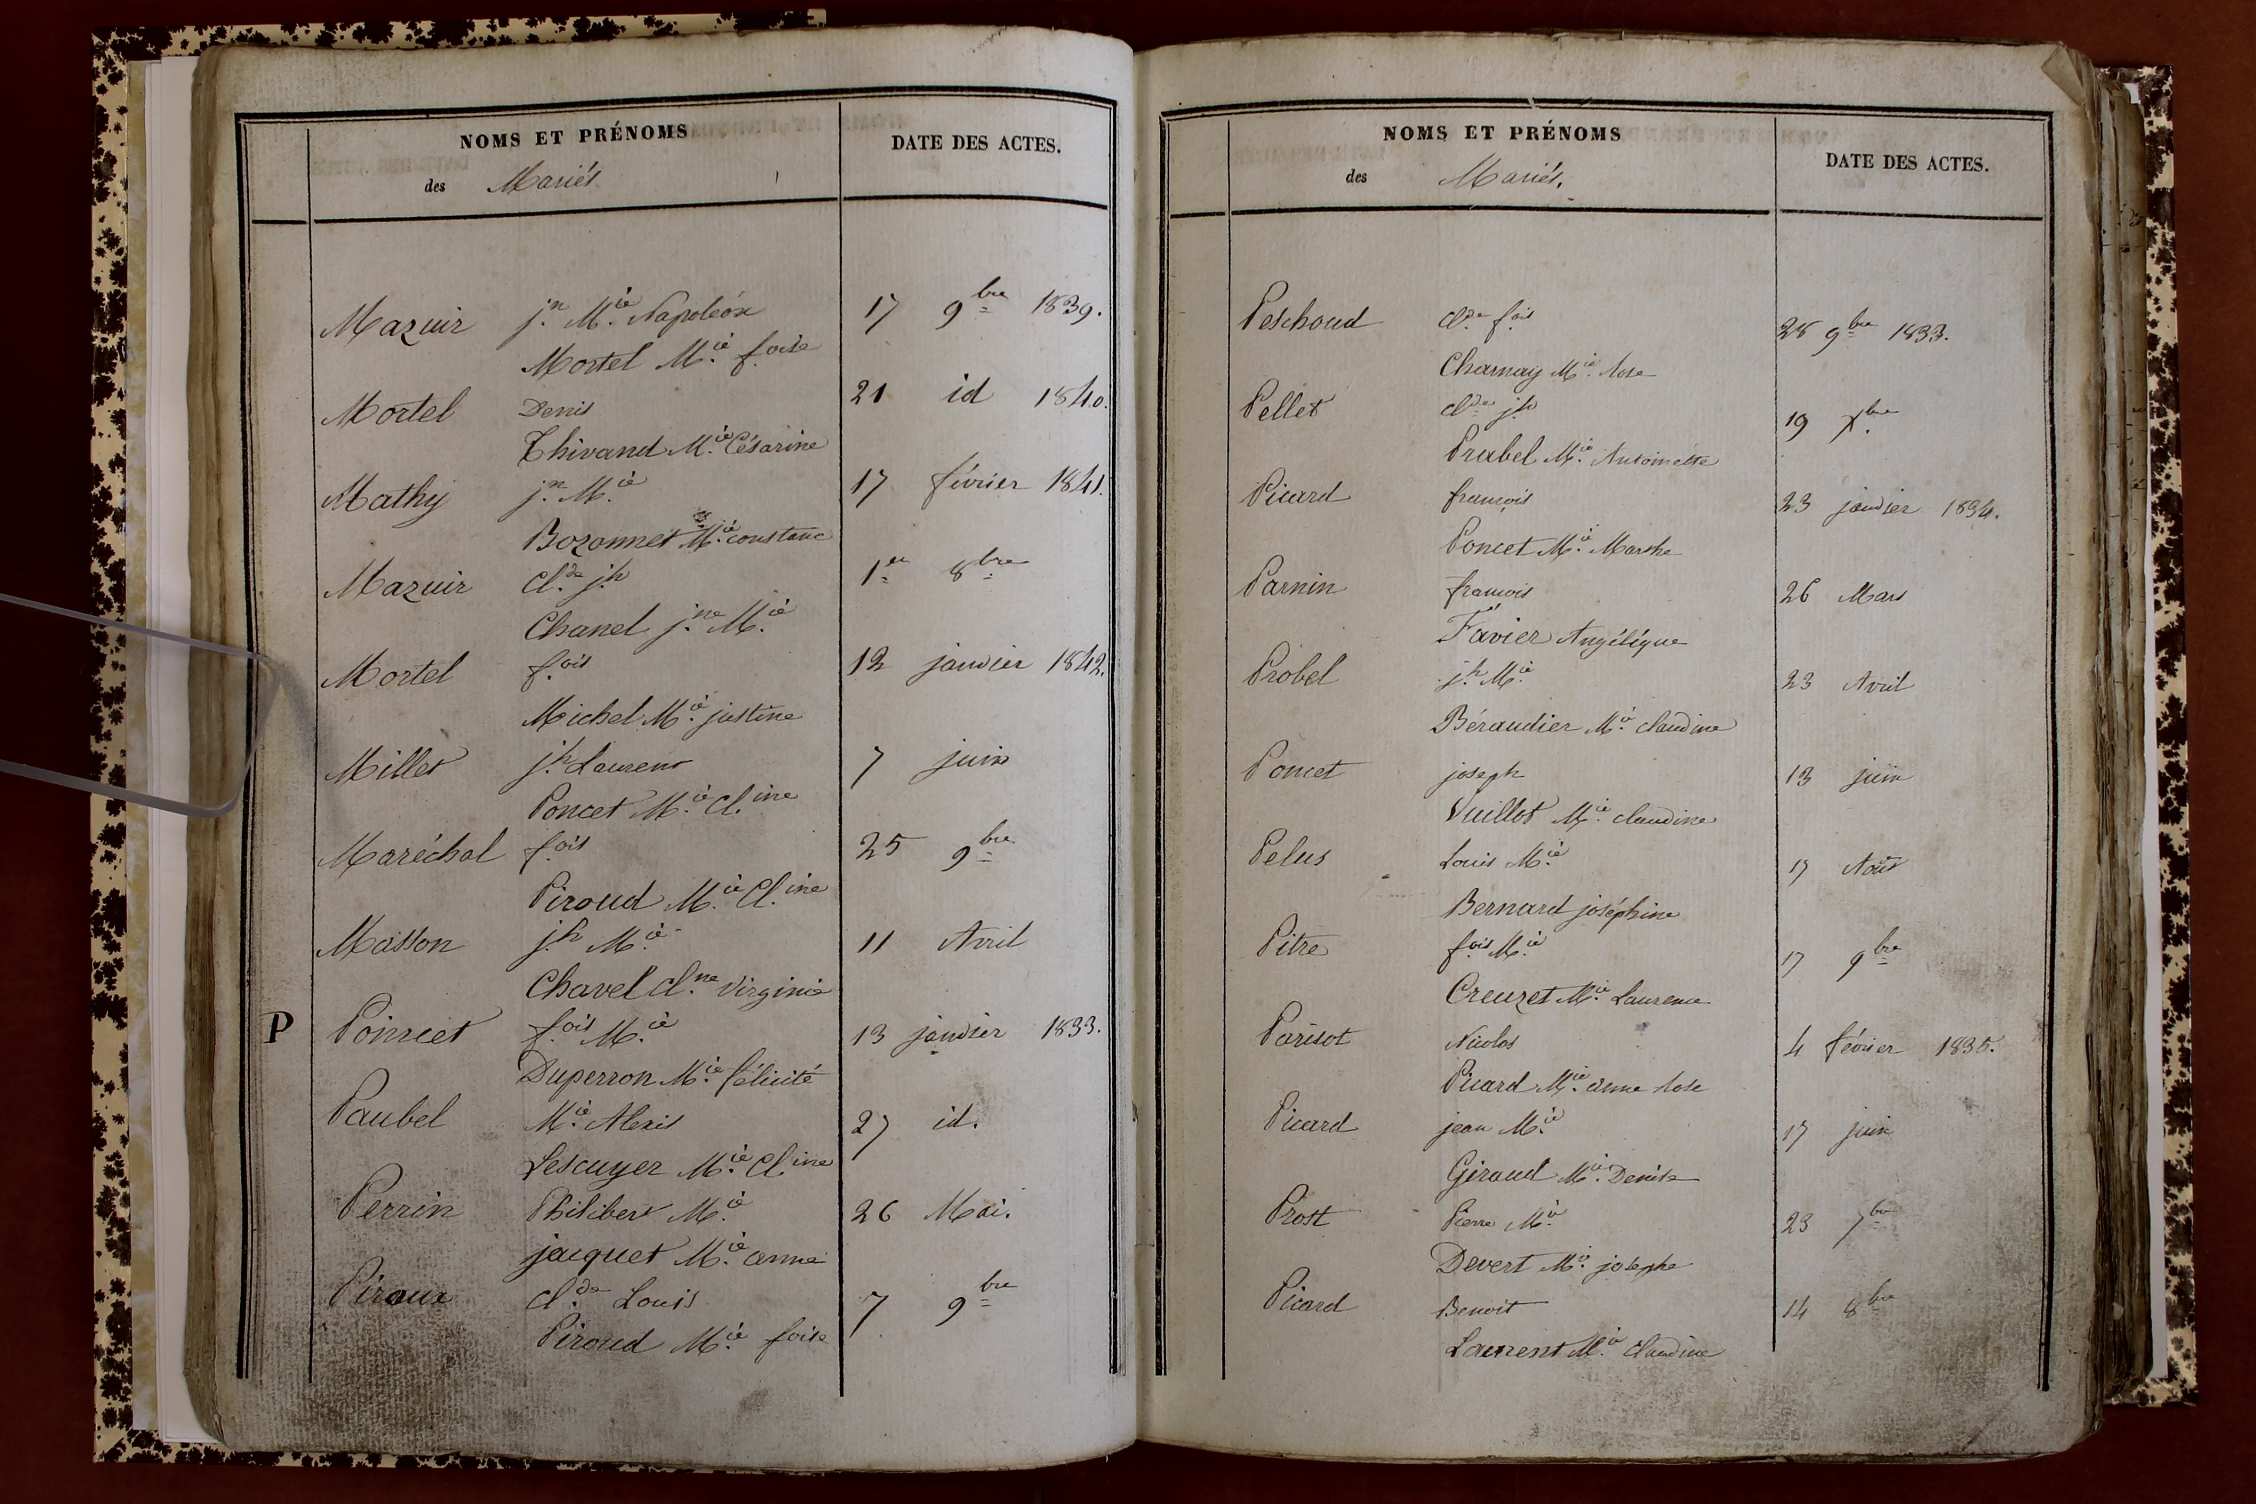 NOMS ET PRÉNOMS DATE DES ACTES.
des Mariés
Mazuir j.n M.ie Napoléon 17 9bre 1839.
Mortel M.ie f.oise
Mortel Denis 21 id 1840.
Thivand M.ie Césarine
Mathy j.n M.ie 17 février 1841.
Bozonnet M.ie constance
Mazuir Cl.de j.h 1er 8bre
Chanel j.ne M.ie
Mortel f.ois 12 janvier 1842.
Michel M.ie justine
Millet j.h Laurent 7 juin
Poncet M.ie Cl.ine
Maréchal f.ois 25 9bre
Piroud M.ie Cl.ine
Masson j.h M.ie 11 Avril
Chavel Cl.ne Virginie
P Poincet f.ois M.ie 13 janvier 1833.
Duperron M.ie félicité
Paubel M.ie Alexis 27 id.
Lescuyer M.ie Cl.ine
Perrin Philibert M.ie 26 Mai.
jacquet M.ie anne
Piroux cl.de Louis 7 9bre
Piroud M.ie foise
NOMS ET PRÉNOMS DATE DES ACTES.
des Mariés.
Peschoud Cl.de f.ois 28 9bre 1833.
Charnay M.ie Rose
Pellet Cl.de j.h 19 Xbre
Prabel M.ie Antoinette
Picard françois 23 janvier 1834.
Poncet M.ie Marthe
Parnin francois 26 Mars
Favier Angélique
Probel j.h M.ie 23 Avril
Béraudier M.ie claudine
Poncet joseph 13 juin
Vuillot M.ie claudine
Pelus Louis M.ie 17 Août
Bernard joséphine
Pitre f.ois M.ie 17 9bre
Creuzet M.ie Laurence
Parisot Nicolas 4 février 1835.
Picard M.ie anne Rose
Picard jean M.ie 17 juin
Giraud M.ie Denise
Prost Pierre M.ie 23 7bre
Devert M.ie josephe
Picard Benoit 14 8bre
Laurent M.ie claudine